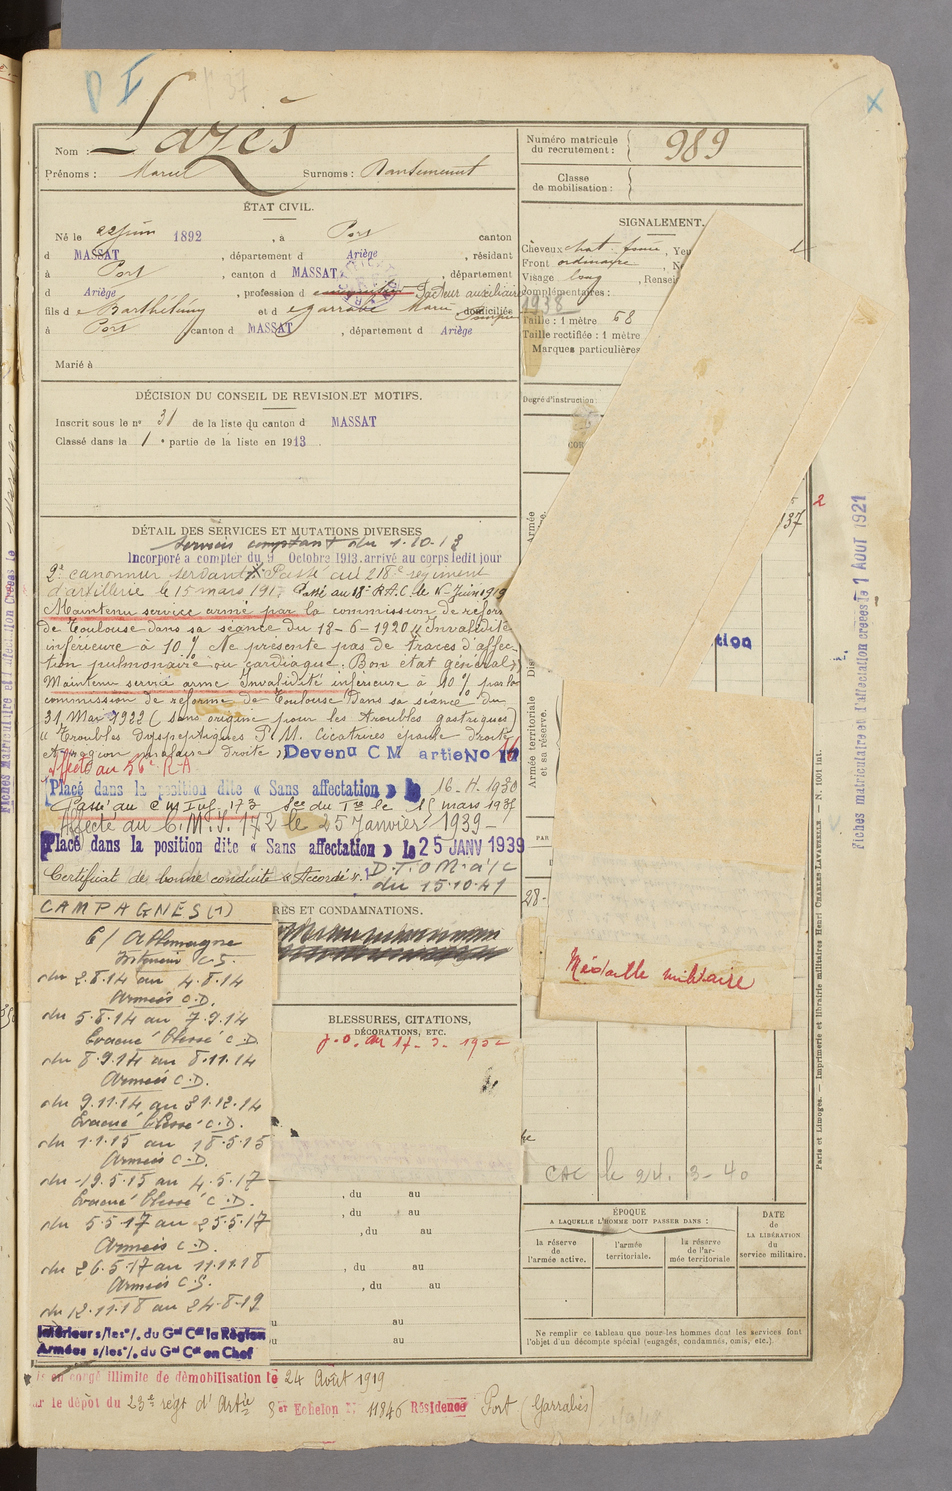 P I
Lazès
Nom :
Prénoms : Marcel Surnoms :
Numéro matricule du recrutement : 989
Classe de mobilisation :
ÉTAT CIVIL.
Né le 22 juin 1892, à Port canton
d MASSAT, département d Ariège, résidant
à Port, canton d MASSAT, département
d Ariège, profession d Facteur auxiliaire
fils d e Barthélémy et d e Garrabé Marie domiciliés
à Port canton d MASSAT, département d Ariège
Marié à
SIGNALEMENT.
Cheveux chat. foncé, Yeu
Front ordinaire, N
Visage long, Rensei
complémentaires :
1938
Taille : 1 mètre 68
Taille rectifiée : 1 mètre
Marques particulières
Degré d'instruction :
DÉCISION DU CONSEIL DE REVISION ET MOTIFS.
Inscrit sous le n° 31 de la liste du canton d MASSAT
Classé dans la 1 e partie de la liste en 1913
DÉTAIL DES SERVICES ET MUTATIONS DIVERSES
Services comptant du 1.10.13
Incorporé a compter du 9 Octobre 1913. arrivé au corps ledit jour
2e canonnier servant. Passé au 218e régiment
d'artillerie le 15 mars 1917 Passé au 18e R.A.C. le Juin 1919
Maintenu service armé par la commission de réfor
de Toulouse dans sa séance du 18-6-1920 « Invalidité
inférieure à 10 % Ne présente pas de traces d'affec-
tion pulmonaire ou cardiaque. Bon état général »
Maintenu service armé Invalidité inférieure à 10 % par la
commission de réforme de Toulouse Dans sa séance du
31 Mai 1922 (sans origine pour les troubles gastriques)
« Troubles dyspeptiques P.M. Cicatrices épaule droite
et région malaire droite » Devenu C M artie No 17
Affecté au 56e R A
Placé dans la position dite « Sans affectation » le 16-4-1930
Passé au C M Inf. 173 le 15 mars 1937
Affecté au C.M.I. 172 le 25 Janvier 1939 -
Placé dans la position dite « Sans affectation » le 25 JANV 1939
Certificat de bonne conduite « Accordé ». D.T.O M. a/c
du 15.10.41
CAMPAGNES (1)
C/ Allemagne
Intérieur C.S.
du 2.8.14 au 4.8.14
Armées C.D.
du 5.8.14 au 7.9.14
Evacué blessé C.D.
du 8.9.14 au 8.11.14
Armées C.D.
du 9.11.14 au 31.12.14
Evacué blessé C.D.
du 1.1.15 au 18.5.15
Armées C.D.
du 19.5.15 au 4.5.17
Evacué blessé C.D.
du 5.5.17 au 25.5.17
Armées C.D.
du 26.5.17 au 11.11.18
Armées C.S.
du 12.11.18 au 24.8.19
Intérieur s/les o/. du Gal Ct la Région
Armées s/les o/. du Gal Ct en Chef
RES ET CONDAMNATIONS.
BLESSURES, CITATIONS,
DÉCORATIONS, ETC.
J.O. du 17-3-1952
Médaille militaire
, du au
, du au
, du au
, du au
, du au
u au
u au
Armée
Armée territoriale
et sa réserve.
PAR
28-
tion
137
2
CAL le 24. 3-40
ÉPOQUE
A LAQUELLE L'HOMME DOIT PASSER DANS :
la réserve de l'armée active.
l'armée territoriale.
la réserve de l'armée territoriale
DATE de LA LIBÉRATION du service militaire.
Ne remplir ce tableau que pour les hommes dont les services font
l'objet d'un décompte spécial (engagés, condamnés, omis, etc.).
en congé illimité de démobilisation le 24 Août 1919
ar le dépôt du 23e régt d'Artie Echelon N° 11846 Résidence Port (Garrabès)
Paris et Limoges. — Imprimerie et librairie militaires Henri CHARLES-LAVAUZELLE — N. 1001 int.
Fiches matriculaire et d'affectation créées le 1 AOUT 1921